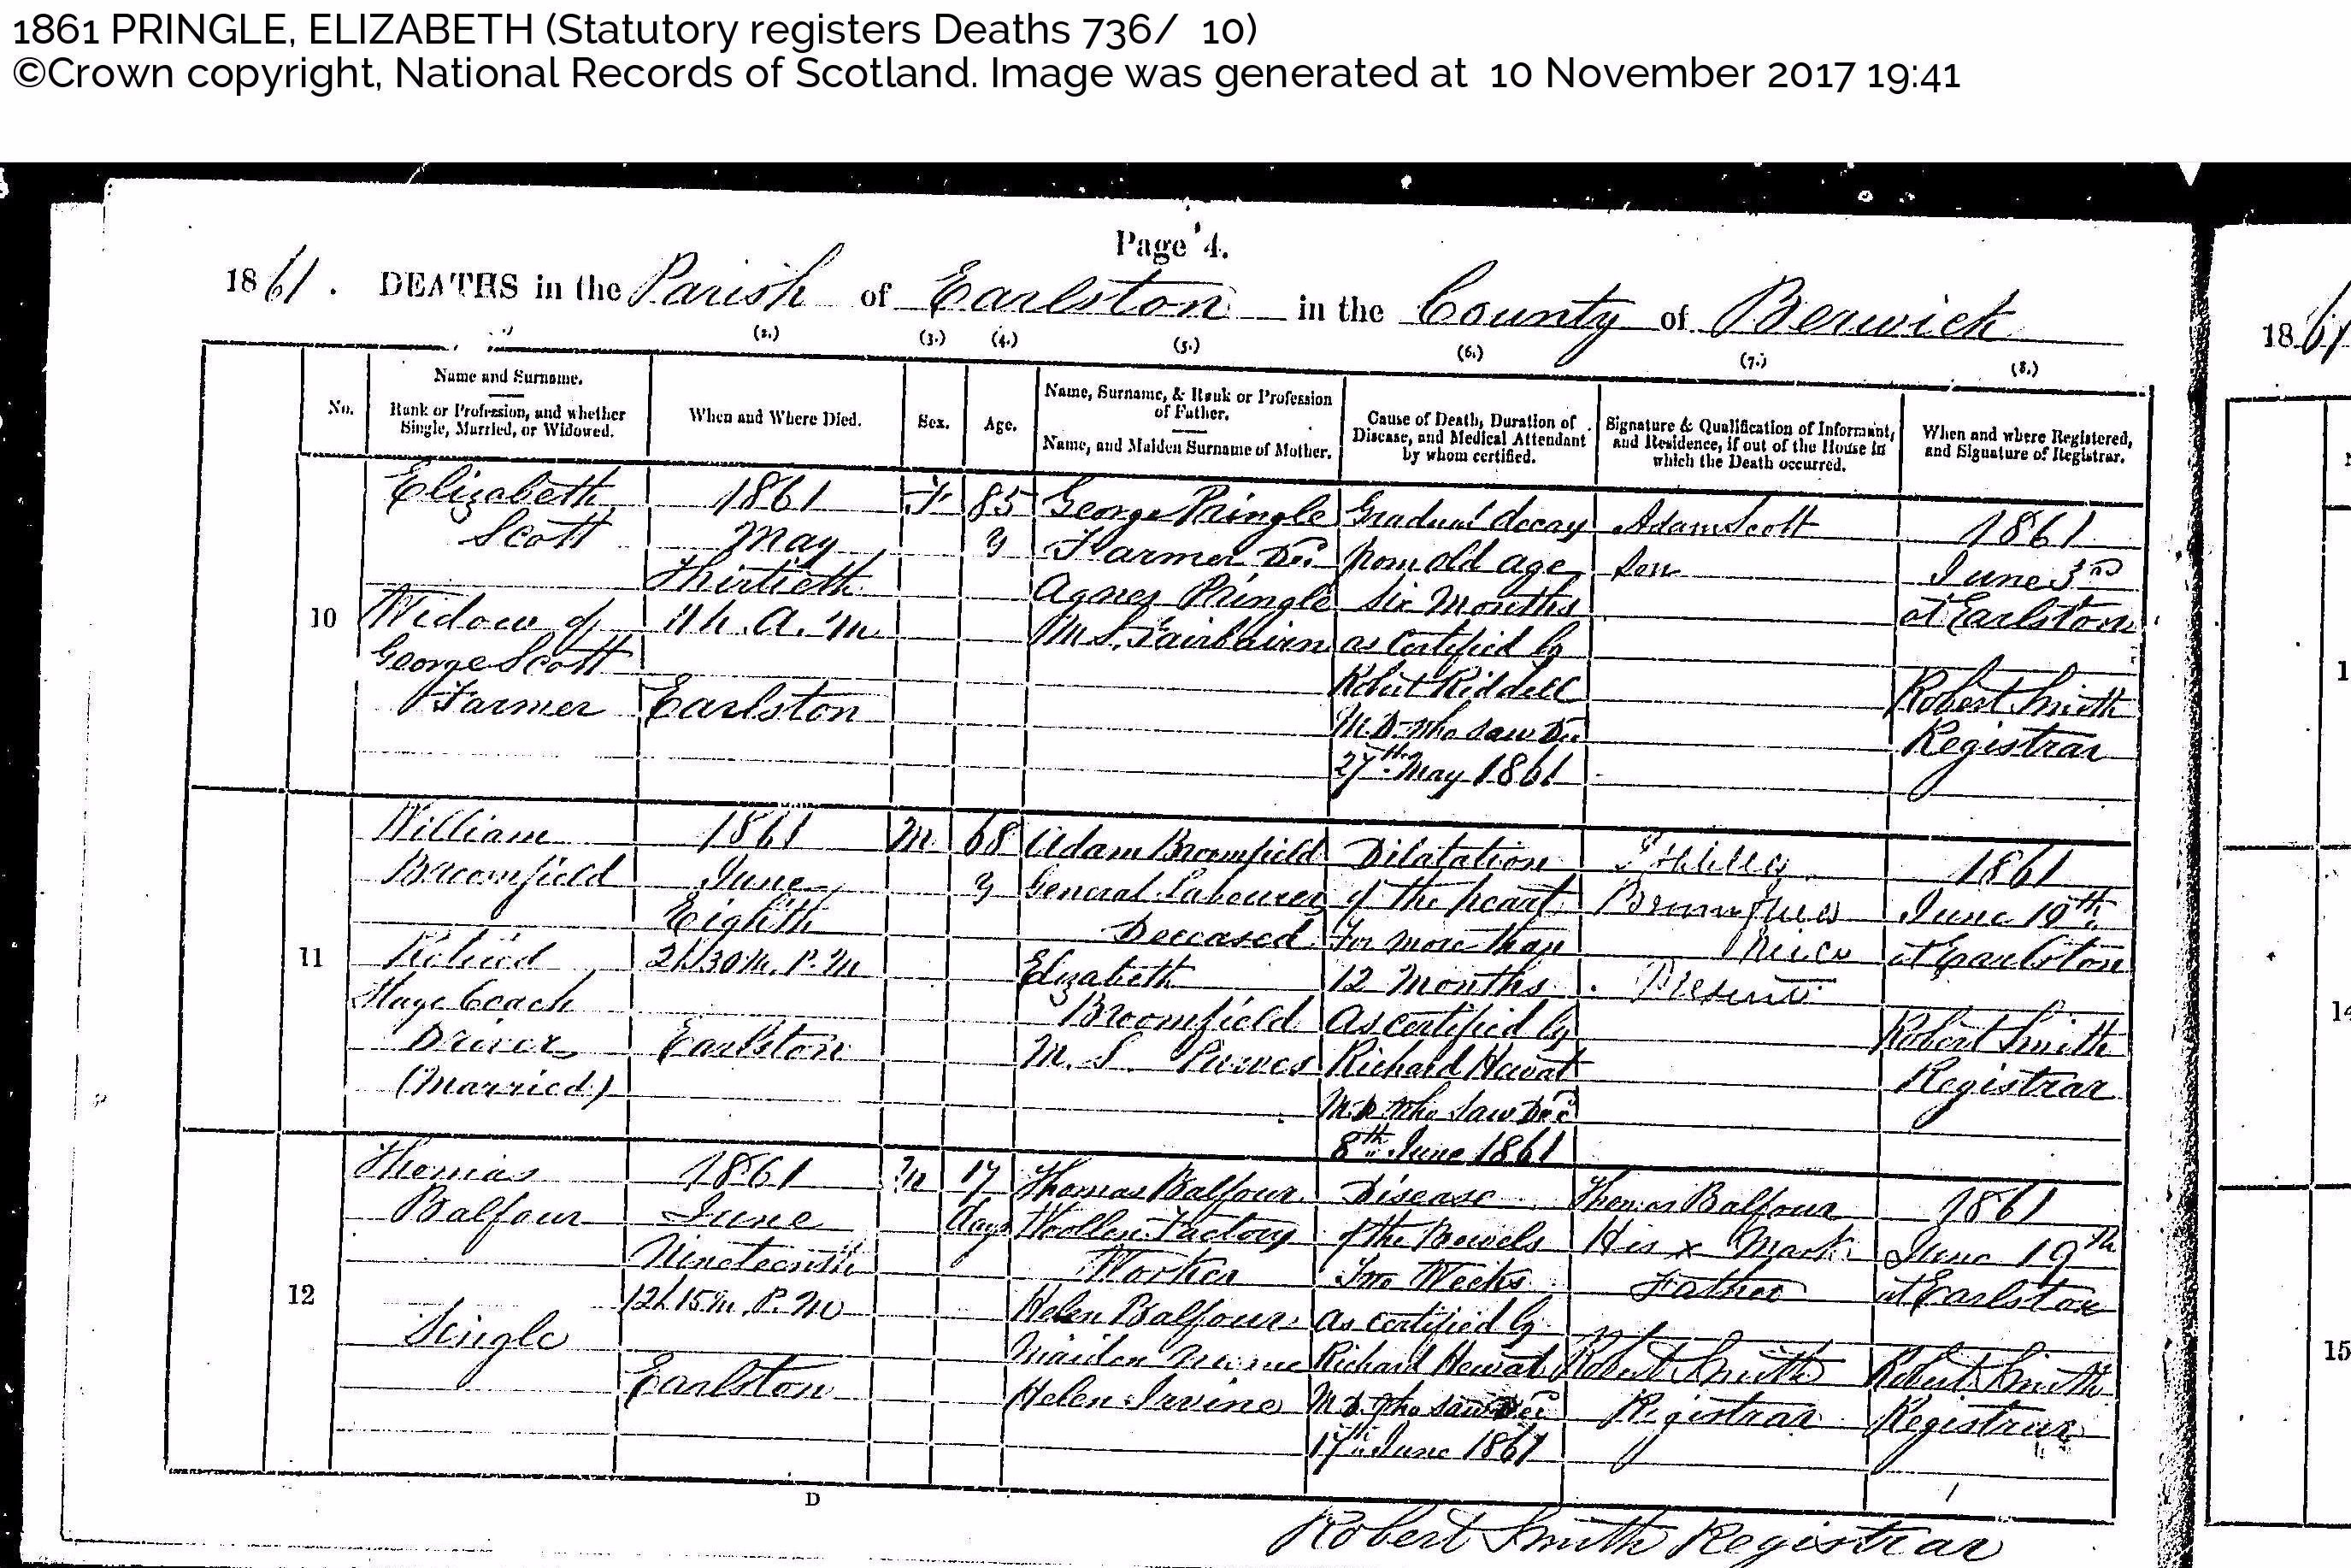 1861 PRINGLE, ELIZABETH (Statutory registers Deaths 736/ 10)
©Crown copyright, National Records of Scotland. Image was generated at 10 November 2017 19:41
Page 4.
1861. DEATHS in the Parish of Earlston in the County of Berwick
(2.) (3.) (4.) (5.) (6.) (7.) (8.)
No.
Name and Surname.
Rank or Profession, and whether
Single, Married, or Widowed.
When and Where Died.
Sex.
Age.
Name, Surname, & Rank or Profession
of Father.
Name, and Maiden Surname of Mother.
Cause of Death, Duration of
Disease, and Medical Attendant
by whom certified.
Signature & Qualification of Informant,
and Residence, if out of the House in
which the Death occurred.
When and where Registered,
and Signature of Registrar.
10
Elizabeth
Scott
Widow of
George Scott
Farmer
1861
May
Thirtieth
11h. A. M.
Earlston
F
85
y
George Pringle
Farmer Decd
Agnes Pringle
M.S. Fairbairn
Gradual decay
from old age
Six Months
as Certified by
Robert Riddell
M.D. who saw Decd
27th May 1861
Adam Scott
Son
1861
June 3rd
at Earlston
Robert Smith
Registrar
11
William
Broomfield
Retired
Stage Coach
Driver
(Married)
1861
June
Eighth
2h. 30m. P. M
Earlston
M
68
y
Adam Broomfield
General Labourer
Deceased
Elizabeth
Broomfield
M. S.
Dilatation
of the heart
For more than
12 Months
As certified by
Richard Hewat
M.D. who saw Decd
8th June 1861
Niece
Present
1861
June 10th
at Earlston
Robert Smith
Registrar
12
Thomas
Balfour
Single
1861
June
Nineteenth
12h. 15m. P. M
Earlston
M
17
days
Thomas Balfour
Woollen Factory
Worker
Helen Balfour
Maiden Name
Helen Irvine
Disease
of the Bowels
Two Weeks
As certified by
Richard Hewat
M.D. who saw Decd
17th June 1861
Thomas Balfour
His x Mark
Father
Robert Smith
Registrar
1861
June 19th
at Earlston
Robert Smith
Registrar
D
Robert Smith Registrar
1861
14
15